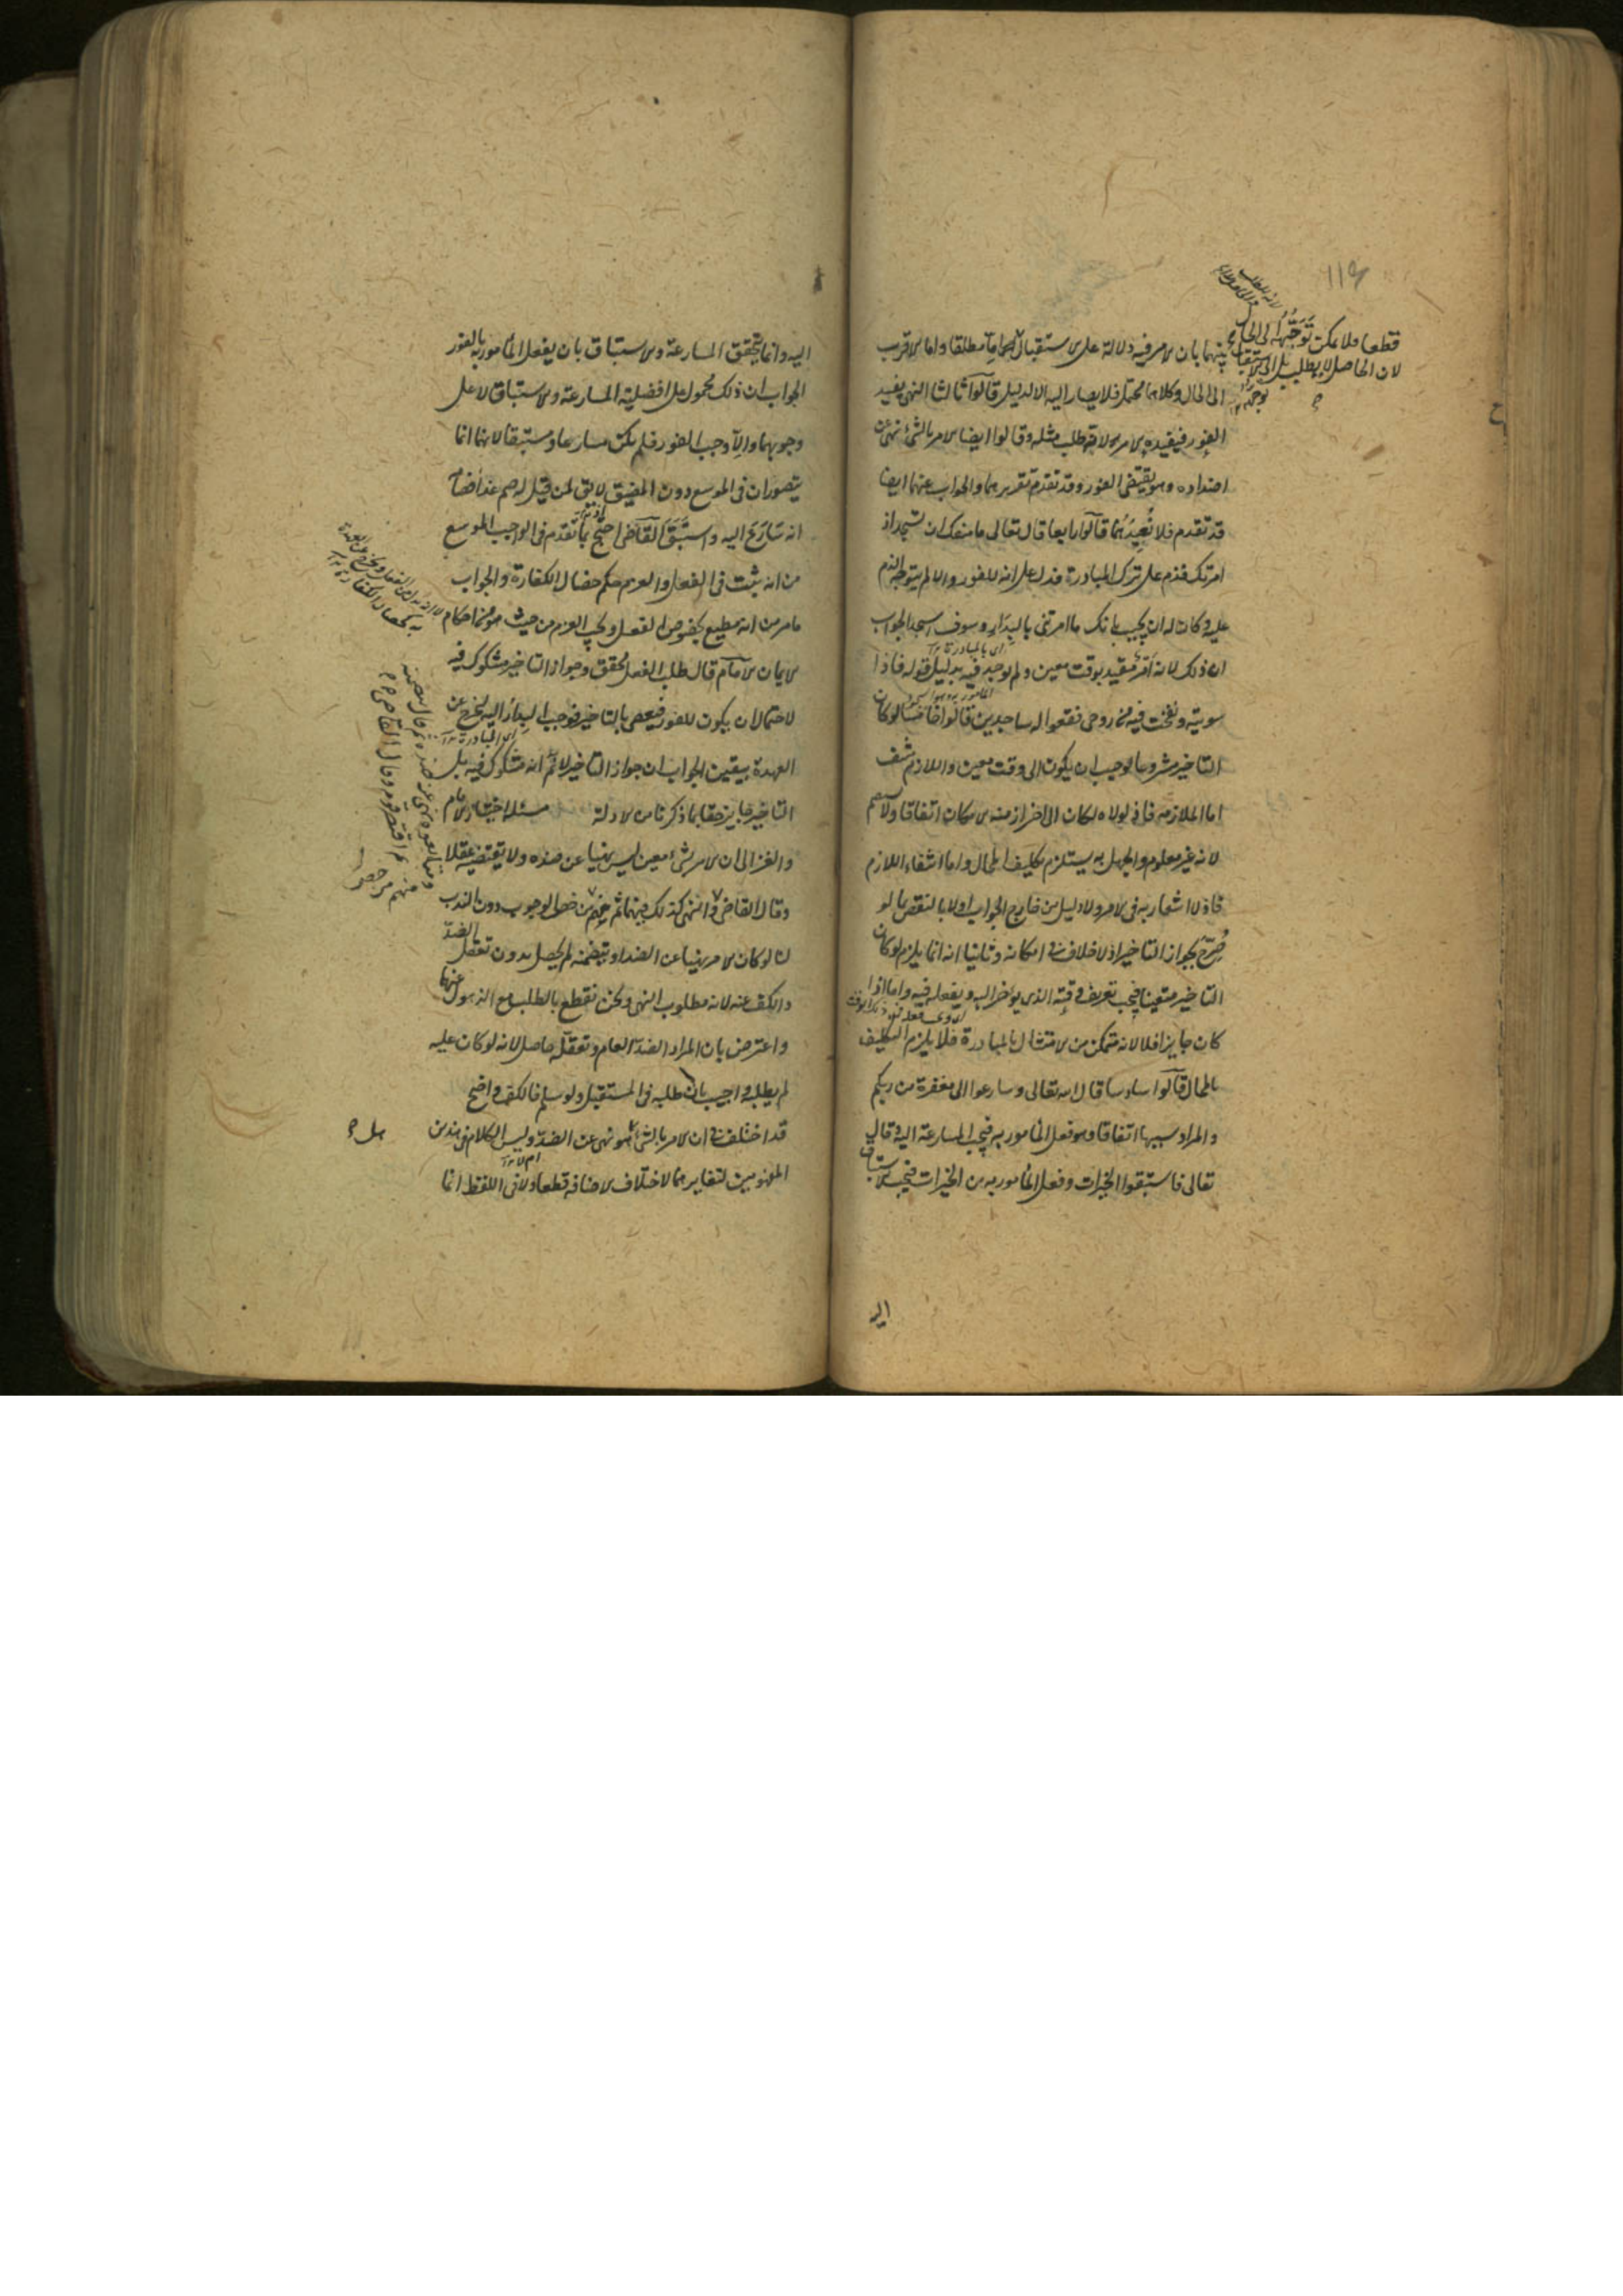 ١١٩
قطعا فلا يمكن توجهه الى الحال
لان الحاصل لا يطلب بل الى الاستقبال
بينهما بان الامر فيه دلالة على الاستقبال اما مطلقا واما الاقرب
الى الحال وكلاهما محتمل فلا يصار اليه الا لدليل قالوا ثالثا النهى يفيد
الفور فيفيده الامر لانه طلب مثله وقالوا ايضا الامر بالشئ نهى عن
اضداده وهو يقتضى الفور وقد تقدم تقريرهما والجواب عنهما ايضا
قد تقدم فلا نعيدهما قالوا رابعا قال تعالى ما منعك ان تسجد اذ
امرتك فذم على ترك المبادرة فدل على انه للفور والا لم يتوجه الذم
عليه وكان له ان يجيب بانك ما امرتنى بالبدار وسوف اسجد الجواب
ان ذلك لانه امر مقيد بوقت معين ولم يوجد فيه بدليل قوله فاذا
اى بالمبادرة
سويته ونفخت فيه من روحى فقعوا له ساجدين قالوا خامسا لو كان
التاخير مشروعا لوجب ان يكون الى وقت معين واللازم منتف
اما الملازمة فاذ لولاه لكان الى اخر ازمنة الامكان اتفاقا ولا يصح
لانه غير معلوم والجهل به يستلزم تكليف المحال واما انتفاء اللازم
فاذ لا اشعار به فى الامر ولا دليل من خارج الجواب اولا بالنقض بما لو
صرح بجواز التاخير اذ لا خلاف فى امكانه وثانيا انه انما يلزم لو كان
التاخير متعينا فيجب تعريف وقته الذى يؤخر اليه ويفعله فيه واما اذا
كان جايزا فلا لانه متمكن من الامتثال بالمبادرة فلا يلزم التكليف
بالمحال قالوا سادسا قال الله تعالى وسارعوا الى مغفرة من ربكم
والمراد سببها اتفاقا وهو فعل المأمور به فيجب المسارعة اليه وقال
تعالى فاستبقوا الخيرات وفعل المأمور به من الخيرات فيجب الاستباق
اليه
اليه وانما يتحقق المسارعة والاستباق بان يفعل المأمور به بالفور
الجواب ان ذلك محمول على افضلية المسارعة والاستباق لا على
وجوبهما والا وجب الفور فلم يكن مسارعا ومستبقا لانهما انما
يتصوران فى الموسع دون المضيق لا يق لمن قيل له صم غدا فصام
انه سارع اليه واستبق القاضى احتج بما تقدم فى الواجب الموسع
من انه يثبت فى الفعل والعزم حكم خصال الكفارة والجواب
ما مر من انه مطيع بخصوص الفعل ويجب العزم من حيث هو من احكام
الايمان الامام قال طلب الفعل محقق وجواز التاخير مشكوك فيه
لاحتمال ان يكون للفور فيعصى بالتاخير فوجب البدار اليه ليخرج عن
اى المبادرة
العهدة بيقين الجواب ان جواز التاخير لا ثم انه مشكوك فيه بل
التاخير جايز حقا بما ذكرنا من الادلة مسئلة اختيار الامام
والغزالى ان الامر بشئ معين ليس نهيا عن ضده ولا يقتضيه عقلا
وقال القاضى والنهى كذلك فيهما ثم منهم من خص الوجوب دون الندب
لنا لو كان الامر نهيا عن الضد او يتضمنه لم يحصل بدون تعقل الضد
والكف عنه لانه مطلوب النهى ونحن نقطع بالطلب مع الذهول عنهما
واعترض بان المراد الضد العام وتعقله حاصل لانه لو كان عليه
لم يطلبه واجيب بان طلبه فى المستقبل ولو سلم فالكف واضح
قد اختلف فى ان الامر بالشئ هو نهى عن الضد وليس الكلام فى هذين
المفهومين لتغايرهما لاختلاف الاضافة قطعا ولا فى اللفظ انما